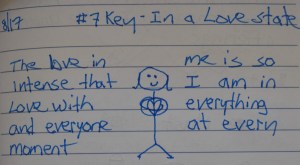 8/17 #7 Key - In a Love state
The love in me is so
intense that I am in
Love with everything
and everyone at every
moment